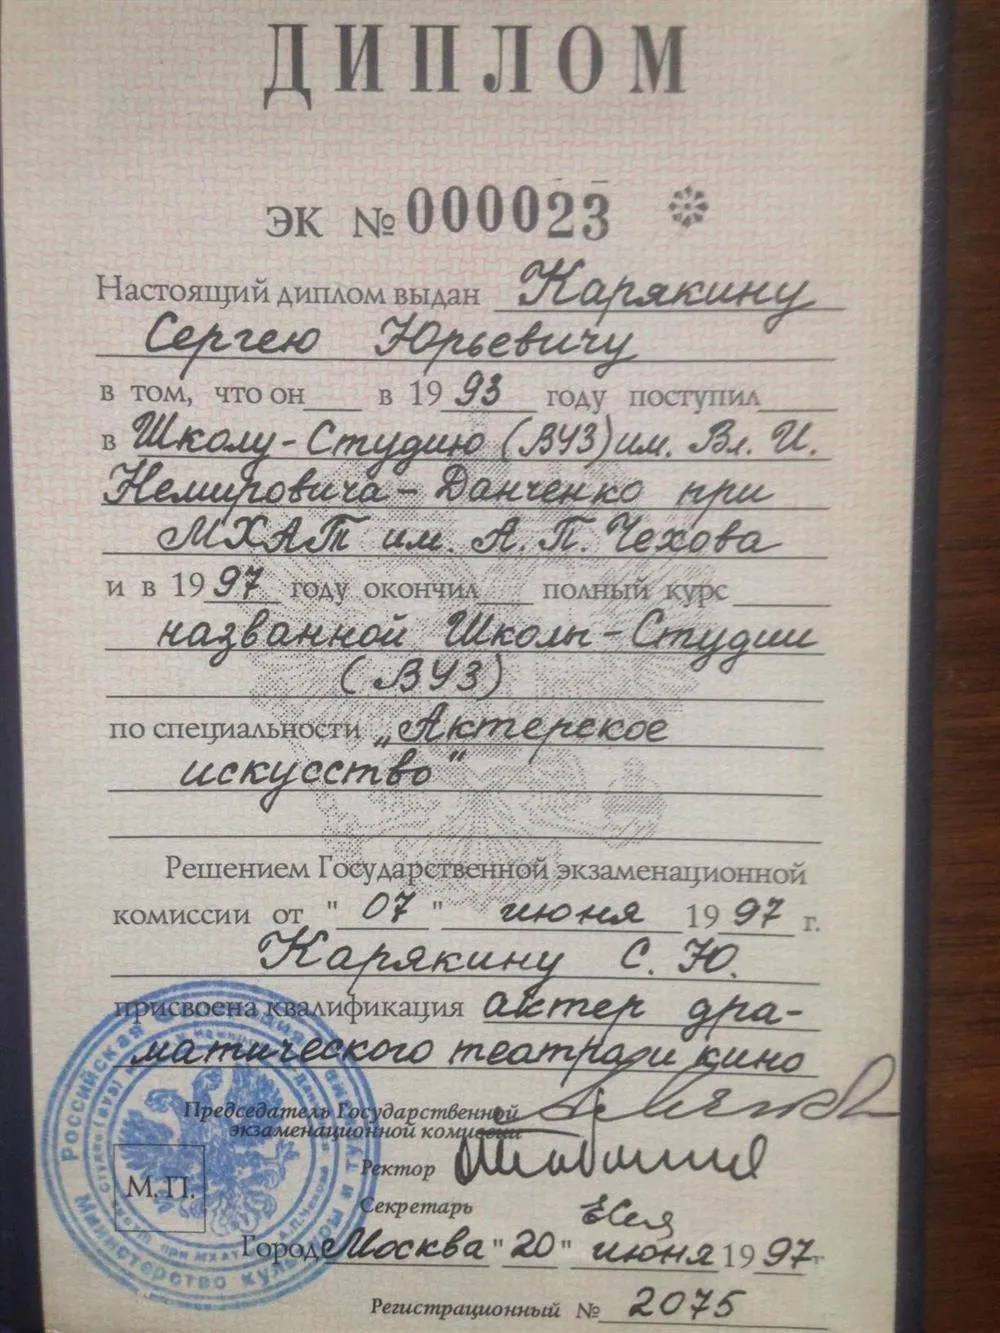 ДИПЛОМ
ЭК № 000023
Настоящий диплом выдан Карякину
Сергею Юрьевичу
в том, что он в 1993 году поступил
в Школу-Студию (ВУЗ) им. Вл. И.
Немировича-Данченко при
МХАТ им. А. П. Чехова
и в 1997 году окончил полный курс
названной Школы-Студии
(ВУЗ)
по специальности „Актерское
искусство"
Решением Государственной экзаменационной
комиссии от "07" июня 1997 г.
Карякину С. Ю.
присвоена квалификация актер дра-
матического театра и кино
Председатель Государственной
экзаменационной комиссии
Ректор
Секретарь
М. П.
Город Москва "20" июня 1997 г.
Регистрационный № 2075
Российская
Министерство культуры
при МХАТ